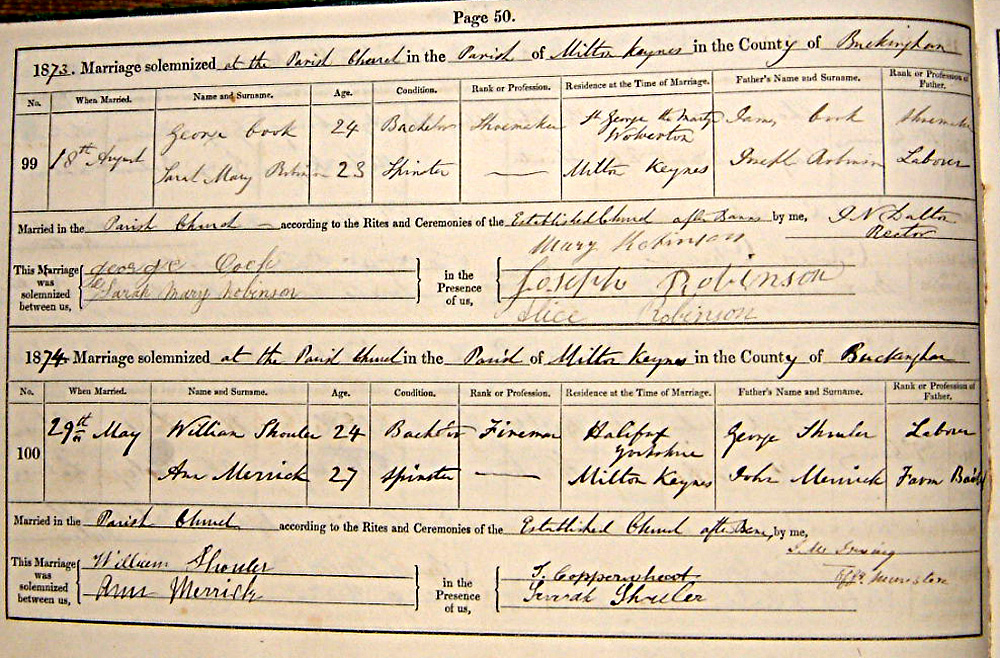 Page 50.
1873. Marriage solemnized at the Parish Church in the Parish of Milton Keynes in the County of Buckingham
No. When Married. Name and Surname. Age. Condition. Rank or Profession. Residence at the Time of Marriage. Father's Name and Surname. Rank or Profession of Father.
99 18th August George Cook 24 Bachelor Shoemaker St George the Martyr Wolverton James Cook Shoemaker
Sarah Mary Robinson 23 Spinster — Milton Keynes Joseph Robinson Labourer
Married in the Parish Church — according to the Rites and Ceremonies of the Established Church after Banns by me, J N Dalton
Rector
This Marriage was solemnized between us, George Cook
Sarah Mary Robinson
in the Presence of us, Mary Robinson
Joseph Robinson
Alice Robinson
1874 Marriage solemnized at the Parish Church in the Parish of Milton Keynes in the County of Buckingham
No. When Married. Name and Surname. Age. Condition. Rank or Profession. Residence at the Time of Marriage. Father's Name and Surname. Rank or Profession of Father.
100 29th May William Shouler 24 Bachelor Fireman Halifax Yorkshire George Shouler Labourer
Ann Merrick 27 Spinster — Milton Keynes John Merrick Farm Bailiff
Married in the Parish Church according to the Rites and Ceremonies of the Established Church after Banns by me,
This Marriage was solemnized between us, William Shouler
Ann Merrick
in the Presence of us, T. Copperwheat
Shouler